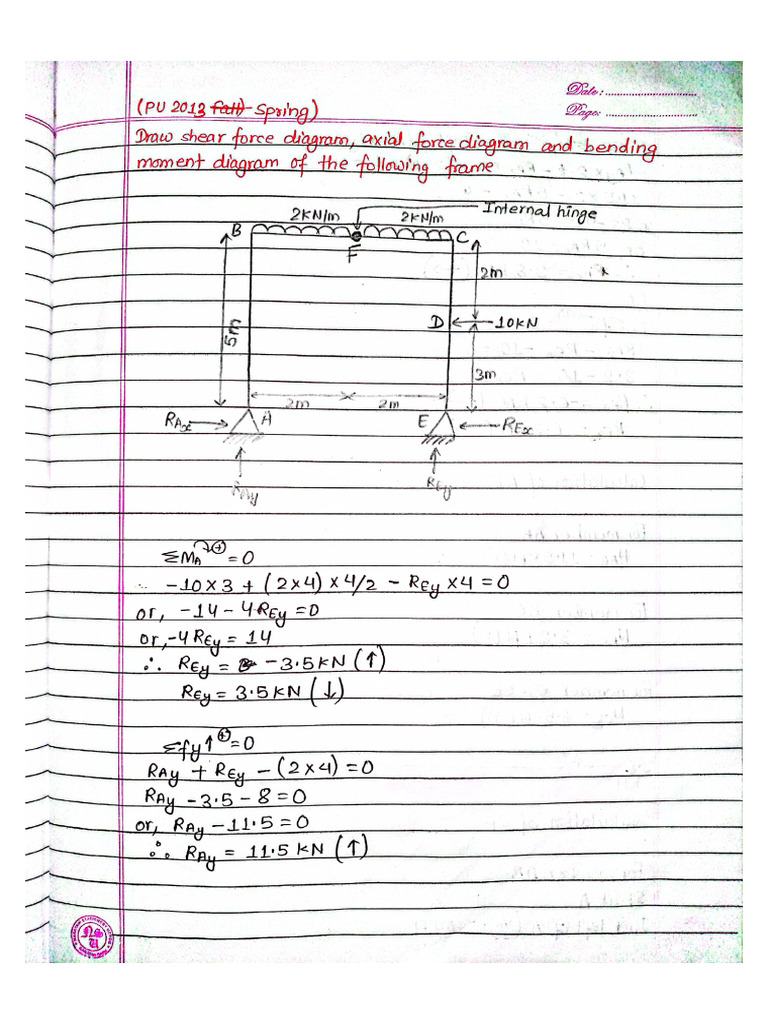 Date:
Page:
(PU 2013 fall Spring)
Draw shear force diagram, axial force diagram and bending
moment diagram of the following frame
2KN/m 2KN/m Internal hinge
B F C
2m
D 10KN
5m
3m
2m 2m
RAx A E REx
RAy REy
ΣMA ⊕ = 0
-10×3 + (2×4)×4/2 - REy×4 = 0
or, -14 - 4REy = 0
or, -4REy = 14
∴ REy = -3.5KN (↑)
REy = 3.5KN (↓)
Σfy↑ ⊕ = 0
RAy + REy - (2×4) = 0
RAy - 3.5 - 8 = 0
or, RAy - 11.5 = 0
∴ RAy = 11.5 KN (↑)